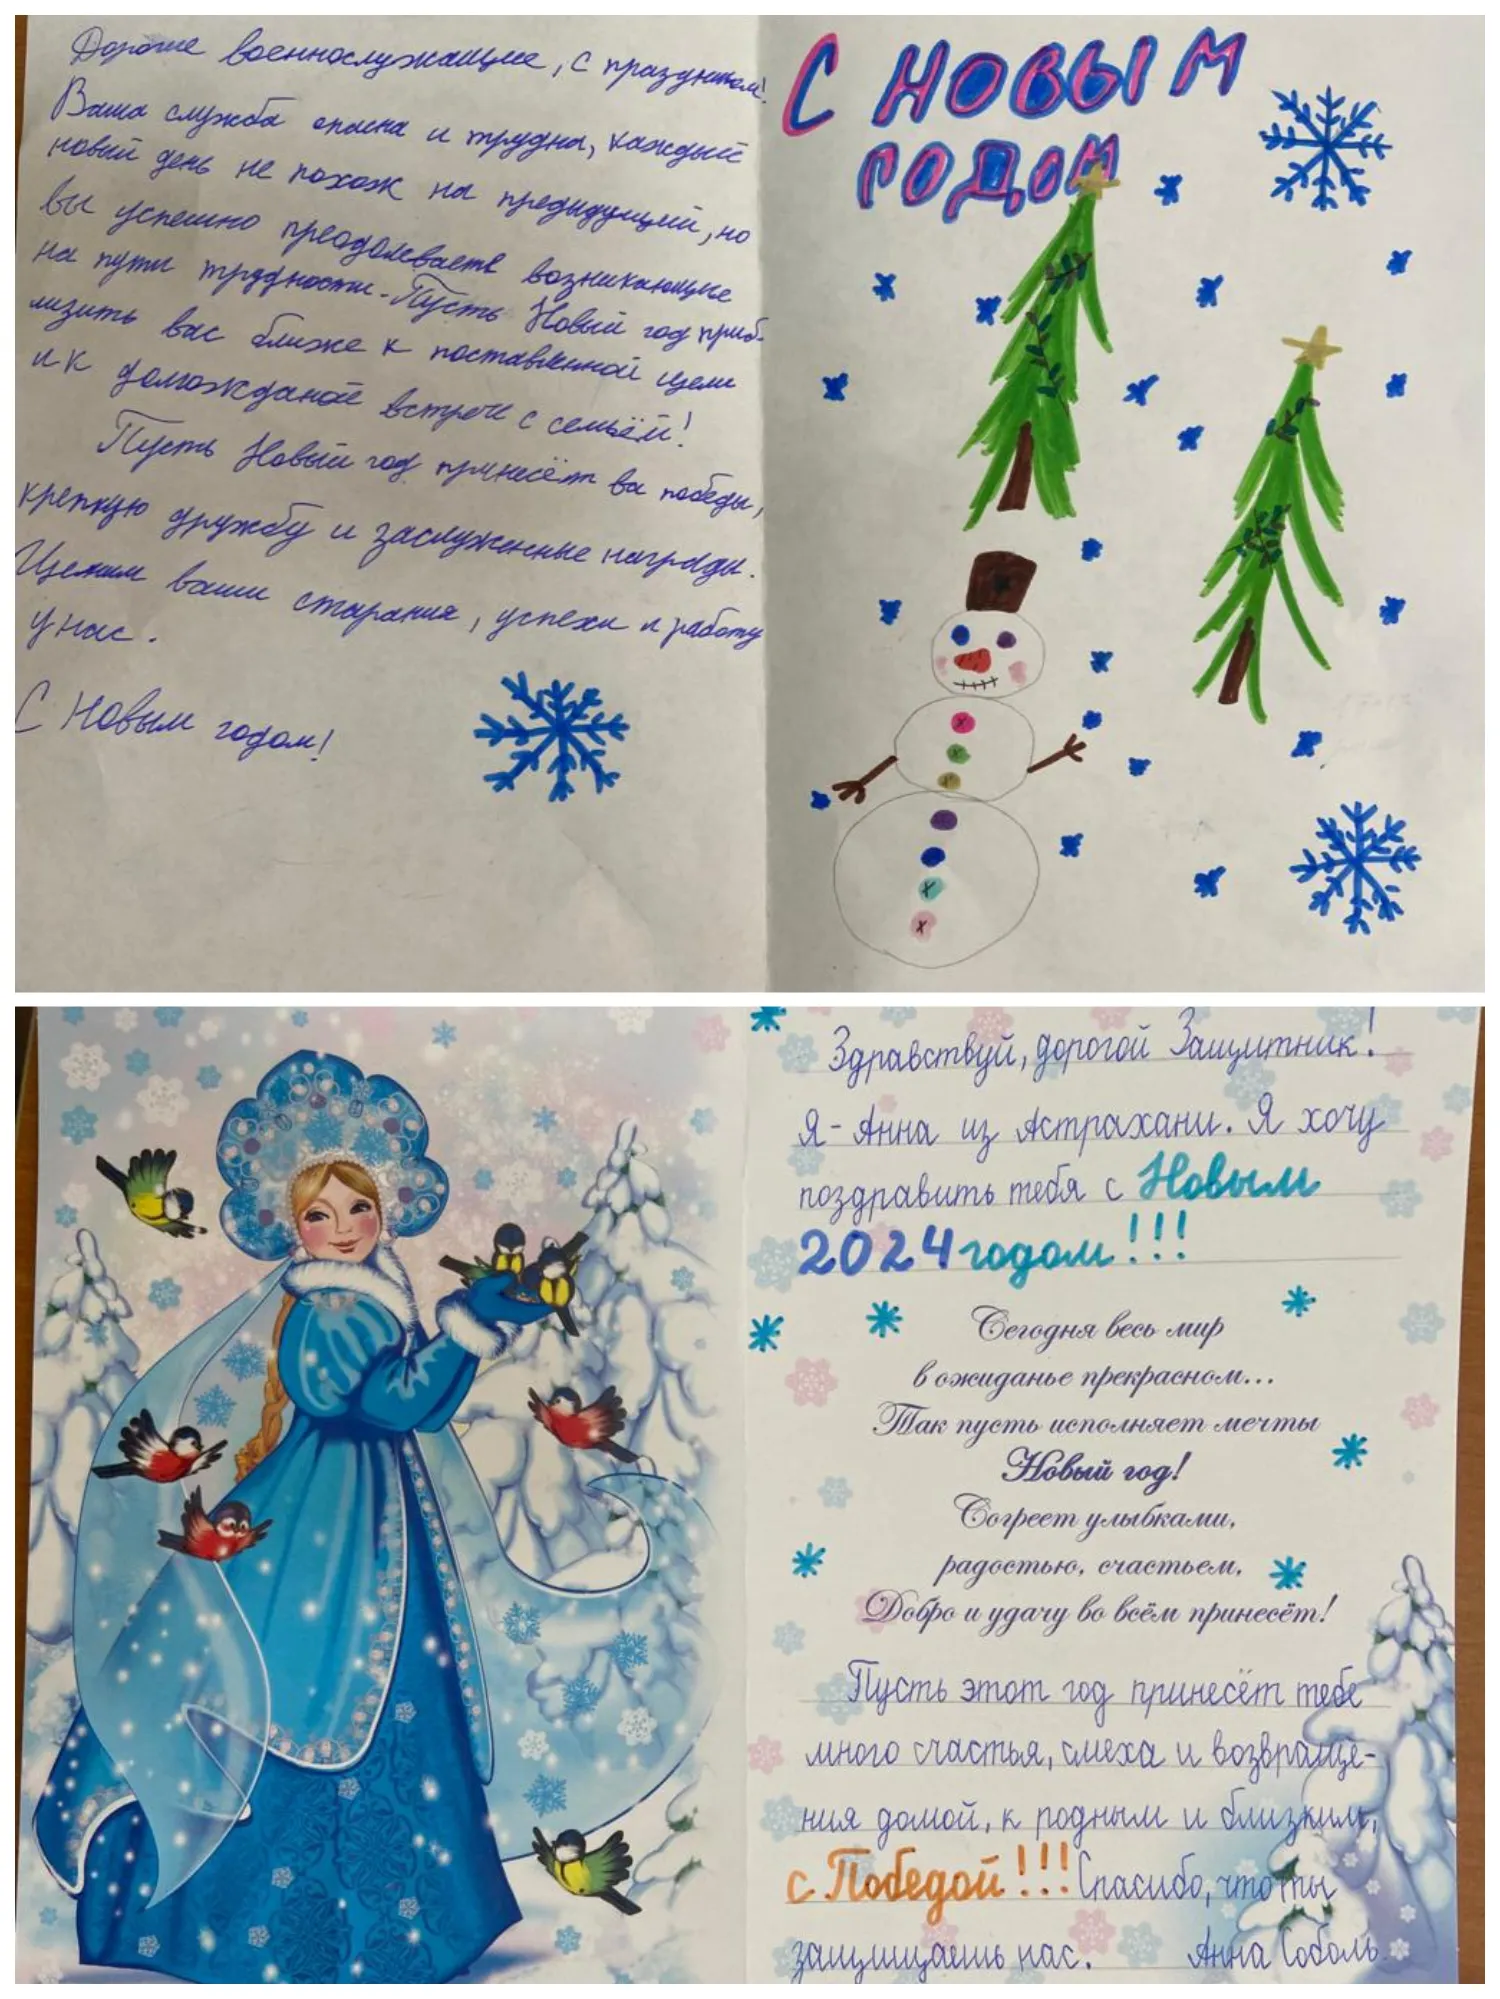 Дорогие военнослужащие, с праздником!
Ваша служба опасна и трудна, каждый
новый день не похож на предыдущий, но
вы успешно преодолеваете возникающие
на пути трудности. Пусть Новый год приб-
лизить вас ближе к поставленной цели
и к долгожданой встрече с семьёй!
Пусть Новый год принесёт ва победы,
крепкую дружбу и заслуженные награды.
Ценим ваши старания, успехи и работу
у нас.
С Новым годом!
С НОВЫМ
ГОДОМ
Здравствуй, дорогой Защитник!
Я - Анна из Астрахани. Я хочу
поздравить тебя с Новым
2024 годом!!!
Сегодня весь мир
в ожиданье прекрасном...
Так пусть исполняет мечты
Новый год!
Согреет улыбками,
радостью, счастьем,
Добро и удачу во всём принесёт!
Пусть этот год принесёт тебе
много счастья, смеха и возвраще-
ния домой, к родным и близким,
с Победой!!! Спасибо, что ты
защищаешь нас. Анна Соболь